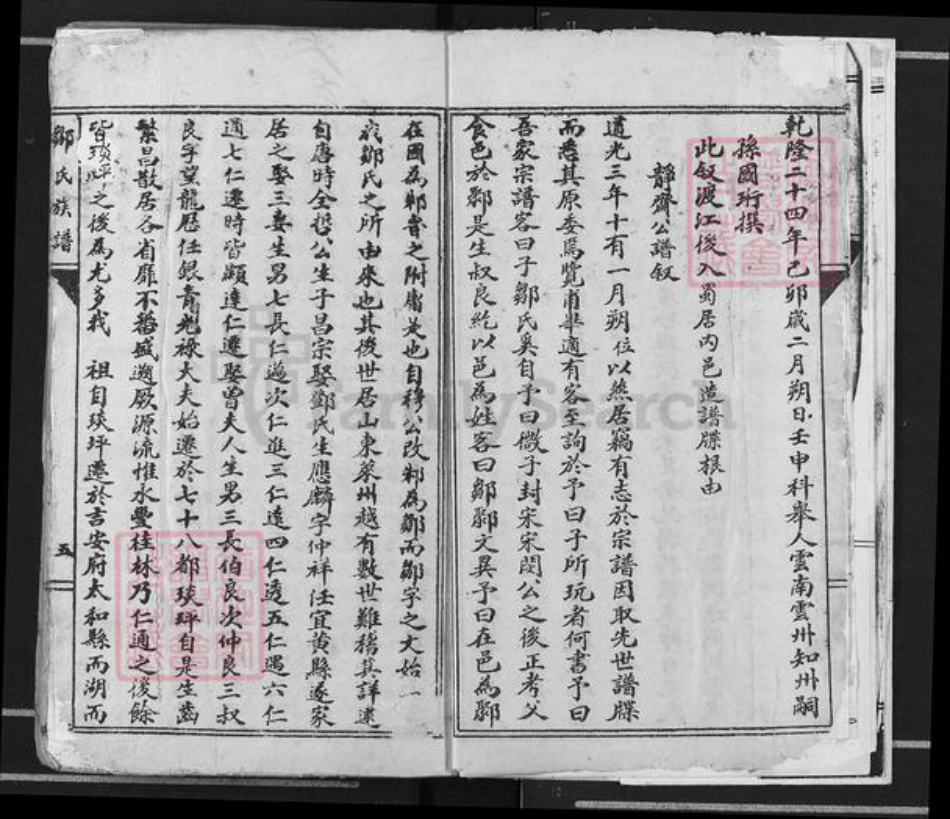 乾隆二十四年己卯歲二月朔日壬申科舉人雲南雲州知州嗣
孫國珩撰
此叙渡江後入蜀居內邑造譜牒根由
靜齋公譜叙
道光三年十有一月朔位以燕居竊有志於宗譜因取先世譜牒
而悉其原委焉覽甫畢適有客至詢於予曰子所玩者何書予曰
吾家宗譜客曰子鄒氏奚自予曰微子封宋宋閔公之後正考父
食邑於鄹是生叔良紇以邑為姓客曰鄒鄹文異予曰在邑為鄹
在國為邾魯之附庸是也自穆公改邾為鄒而鄒字之文始一
前鄒氏之所由來也其後世居山東萊州越有數世難稽其詳逮
自唐時全哲公生子昌宗娶鄧氏生應麟字仲祥任宜黃縣遂家
居之娶三妻生男七長仁邁次仁進三仁遠四仁透五仁遇六仁
通七仁遷時皆顯達仁遷娶曾夫人生男三長伯良次仲良三叔
良字望龍歷任銀青光祿大夫始遷於七十八都琰坪自是生齒
繁曰散居各省靡不蕃盛遡厥源流惟水豐桂林乃仁通之後餘
皆琰坪之後為尤多哉 祖自琰坪遷於吉安府太和縣而湖而
鄒氏族譜
五
FamilySearch